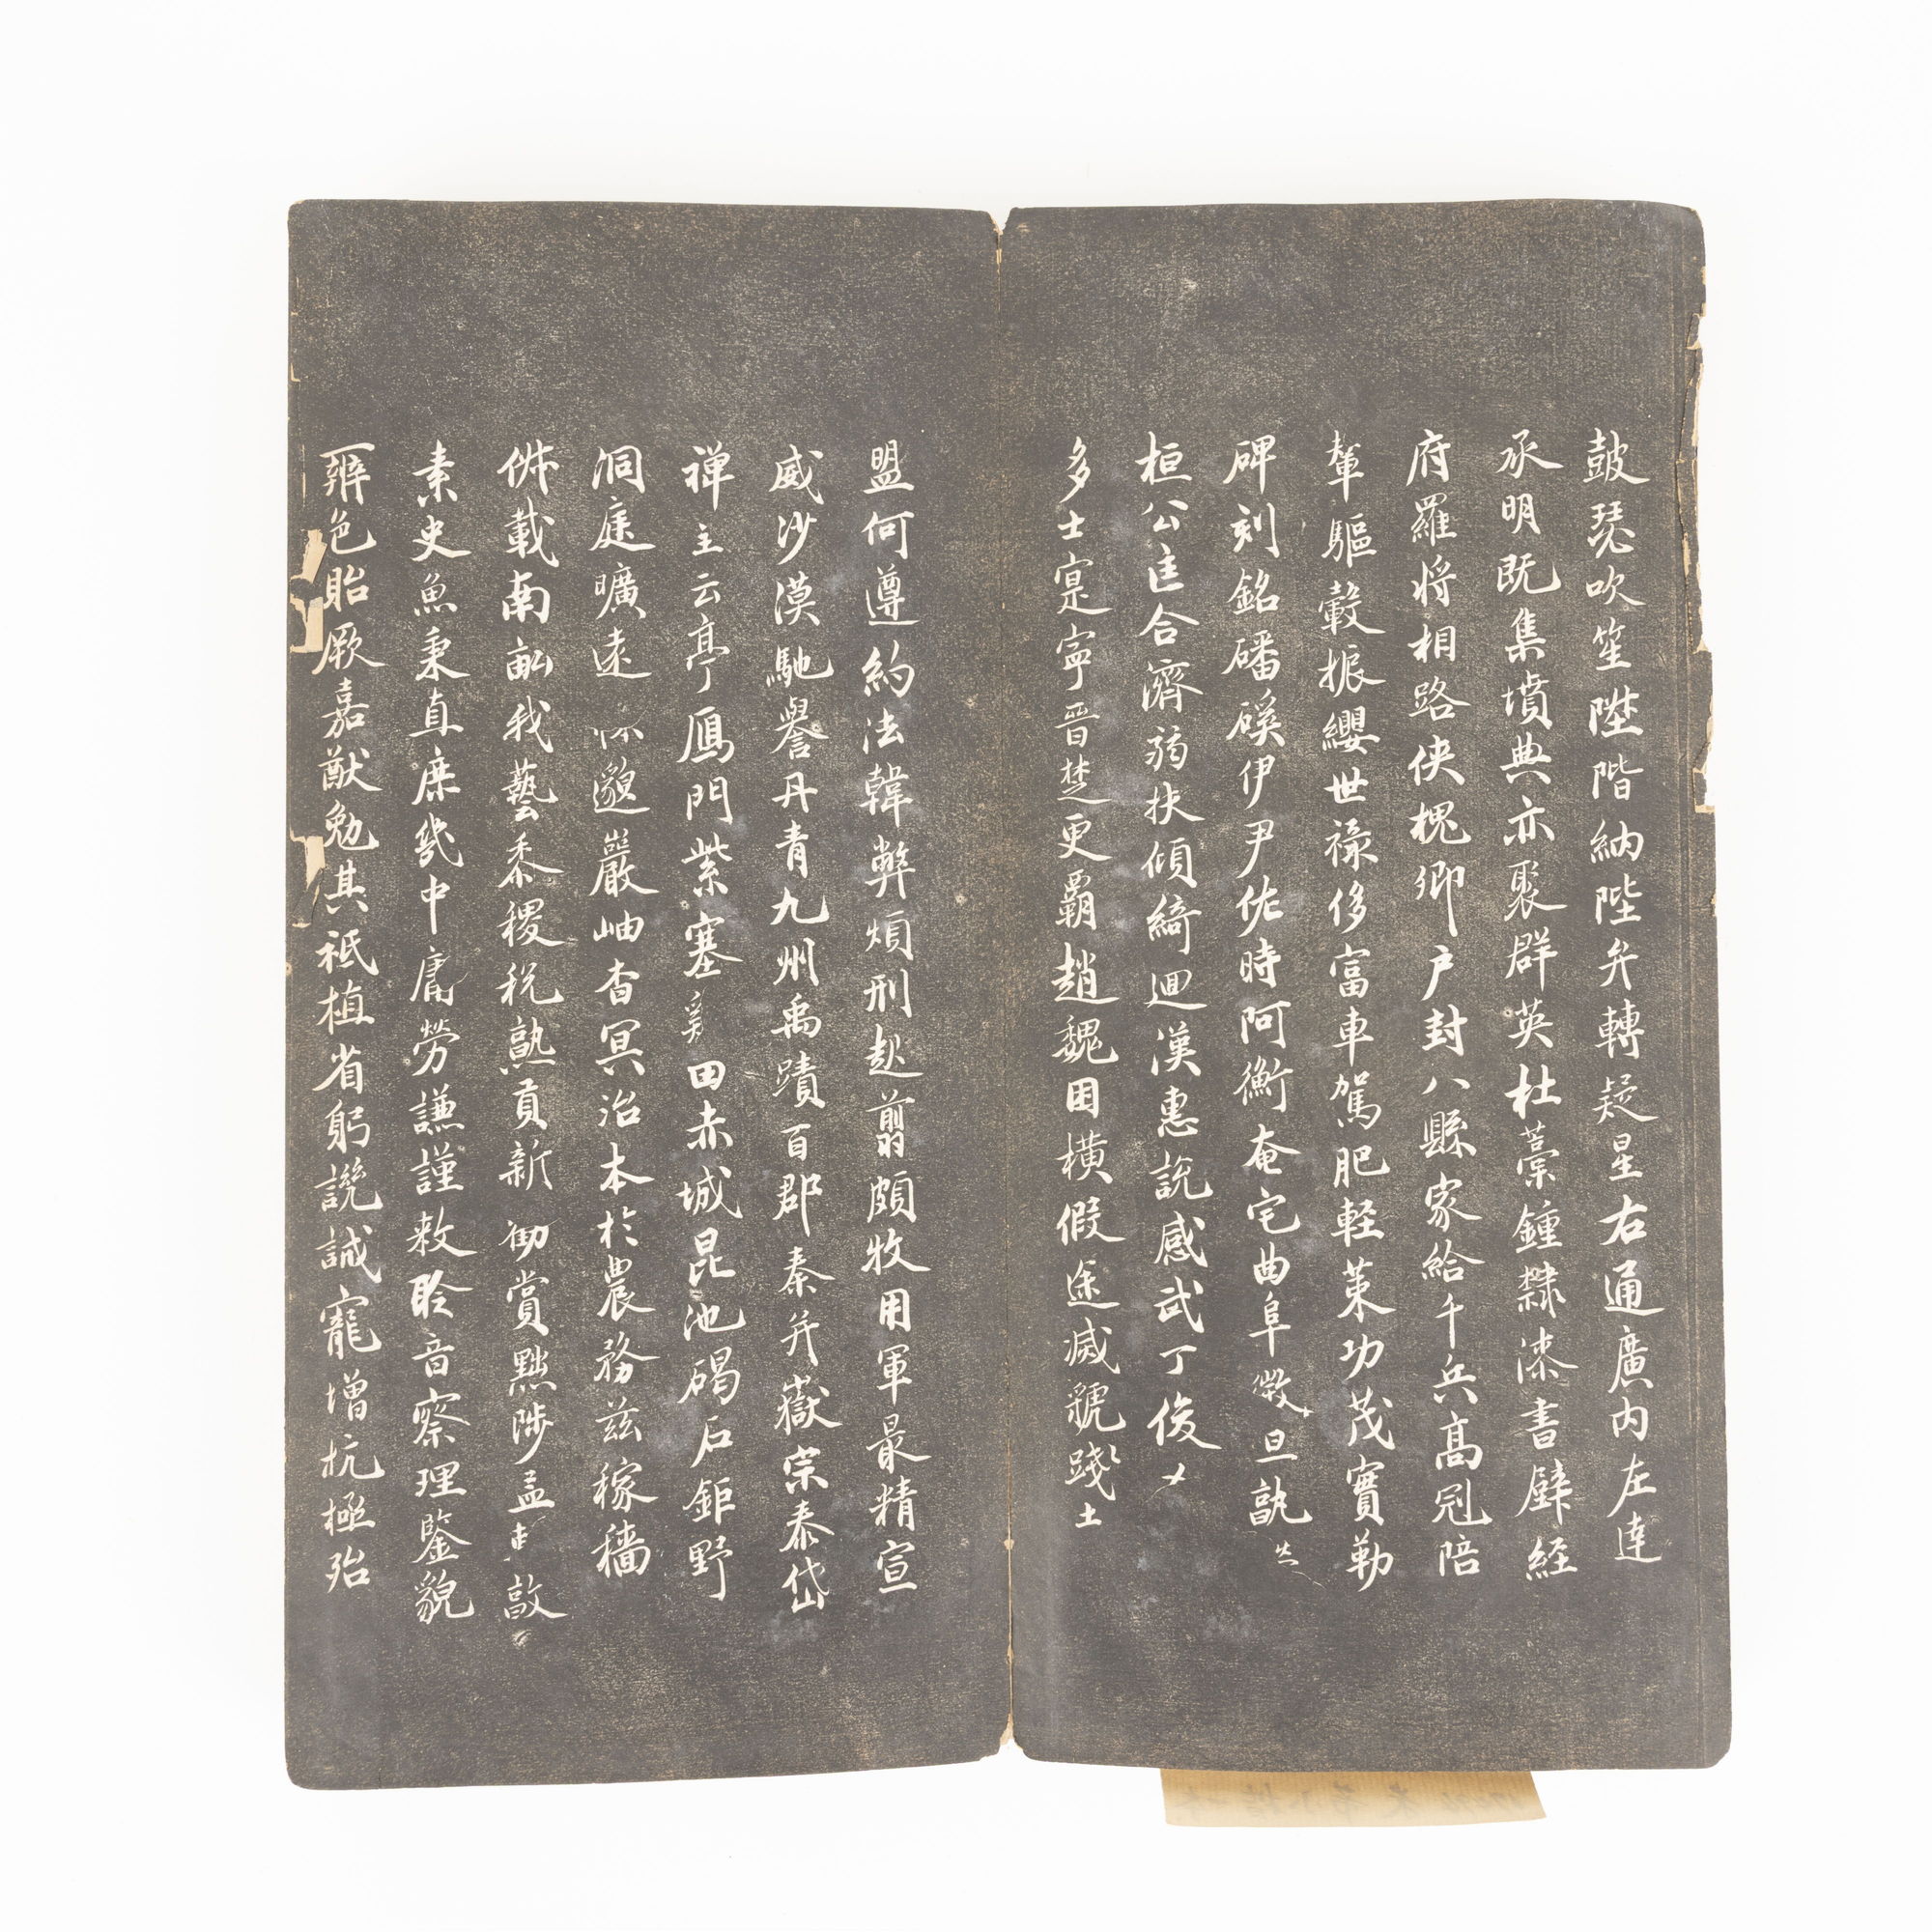 鼓瑟吹笙陞階納陛弁轉疑星右通廣内左達
承明既集墳典亦聚群英杜藁鍾隸漆書壁経
府羅将相路俠槐卿户封八縣家給千兵髙冠陪
輦驅轂振纓世祿侈富車駕肥軽策功茂實勒
碑刻銘磻磎伊尹佐時阿衡奄宅曲阜微旦孰
桓公匡合濟弱扶傾綺迴漢惠說感武丁俊乂
多士寔寧晉楚更覇趙魏困橫假途滅虢踐土
盟何遵約法韓弊煩刑起翦頗牧用軍最精宣
威沙漠馳譽丹青九州禹蹟百郡秦并嶽宗泰岱
禅主云亭鴈門紫塞田赤城昆池碣石鉅野
洞庭曠遠邈巖岫杳冥治本扵農務茲稼穡
俶載南畝我藝黍稷稅熟貢新勸賞黜陟孟敦
素史魚秉直庶幾中庸勞謙謹敕聆音察理鑒貌
辨色貽厥嘉猷勉其祗植省躬譏誡寵增抗極殆